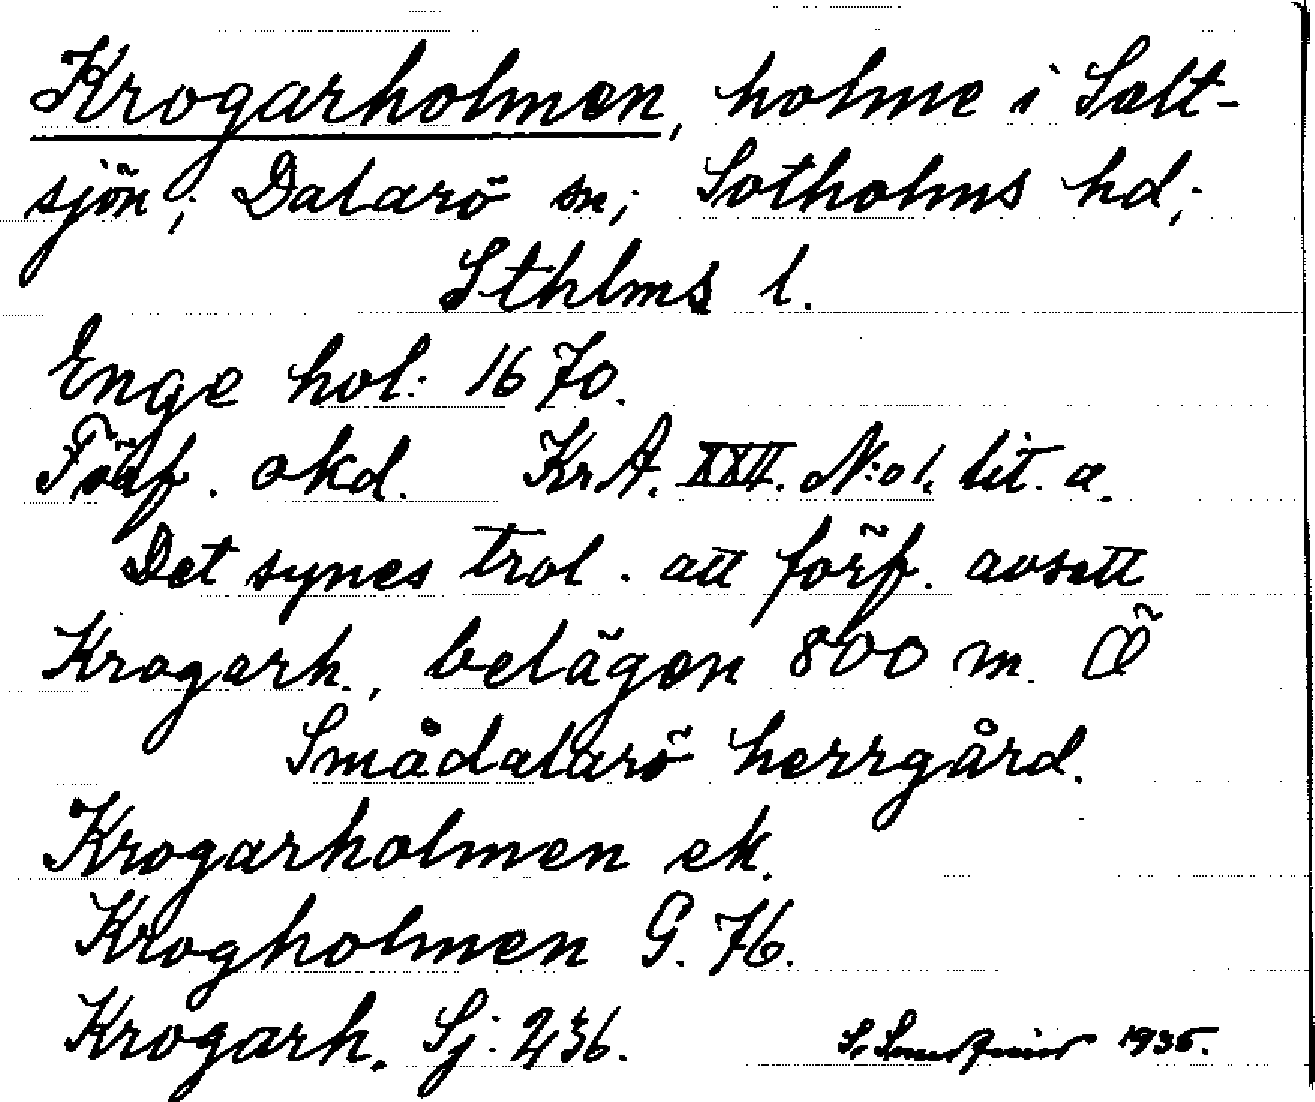 Krogarholmen, holme i Salt-
sjön; Dalarö sn; Sotholms hd;
Sthlms l.
Enge hol: 1670.
Förf. okd. Kr A. XXII. N:o 1. lit. a.
Det synes trol. att förf. avsett
Krogarh., belägen 800 m. Ö
Smådalarö herrgård.
Krogarholmen ek.
Krogholmen G. 76.
Krogarh. Sj: 236.
1935.